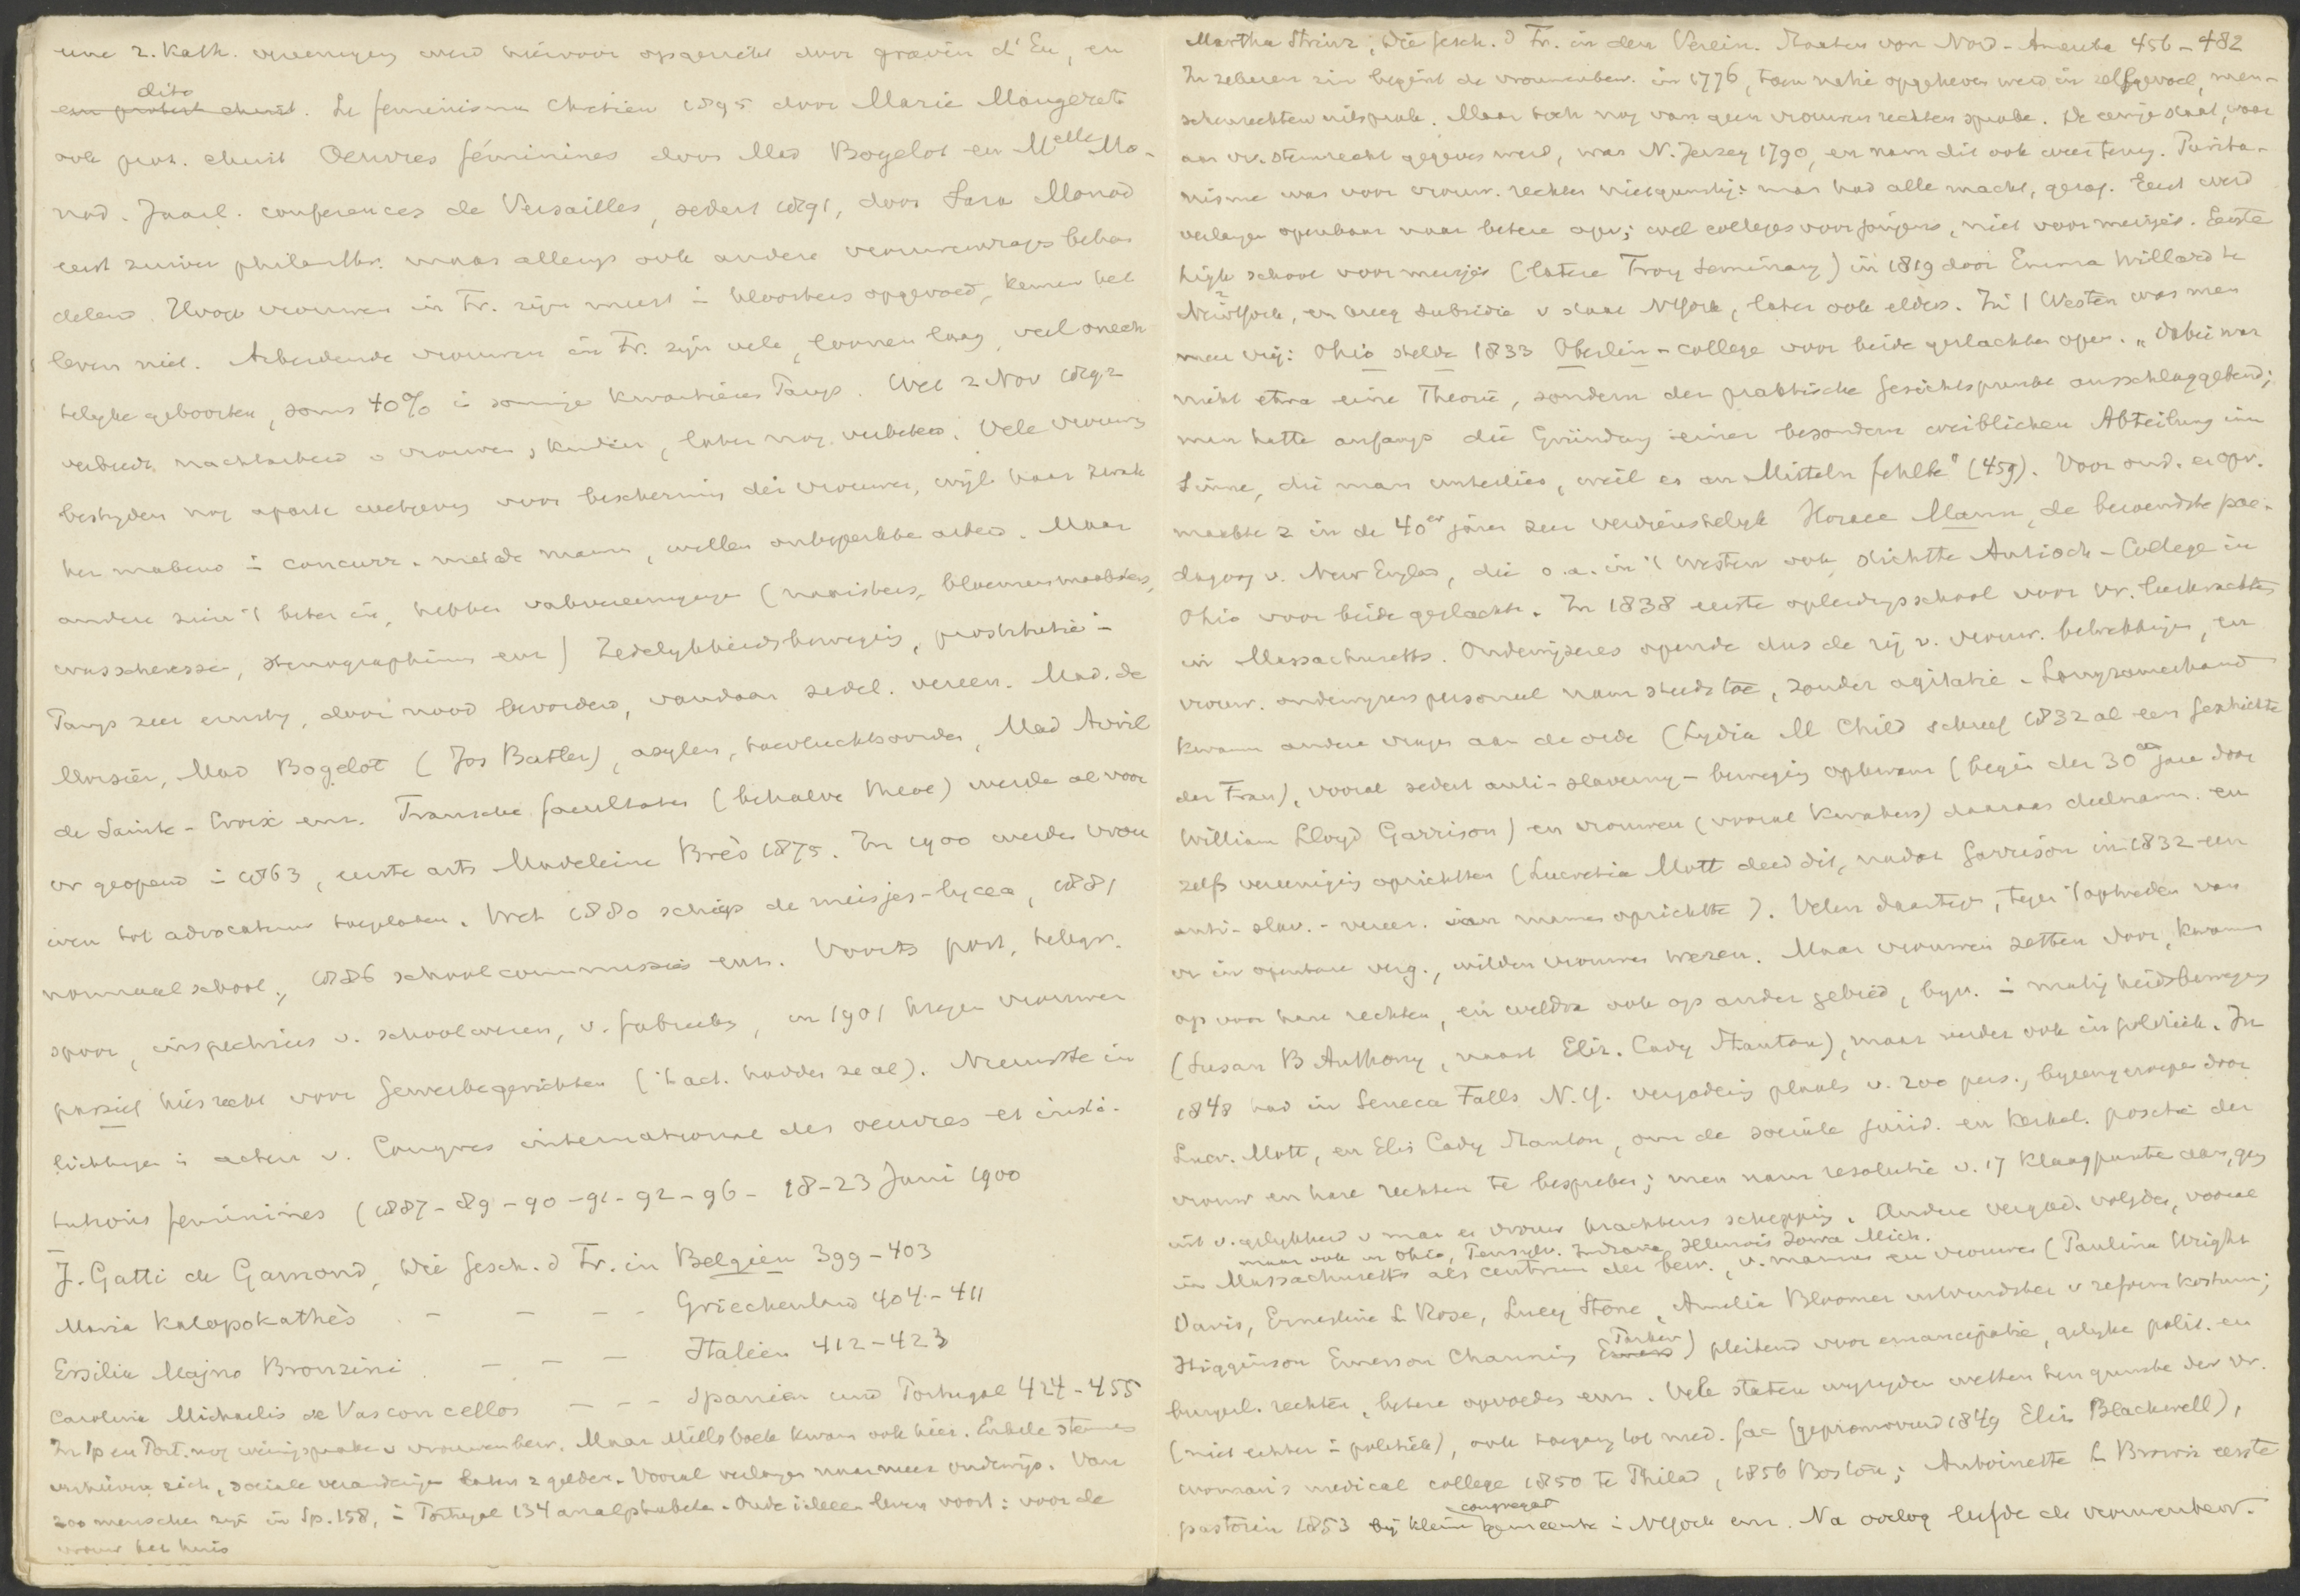 une r. Kath. vereeniging werd hiervoor opgericht door gravin d'Eu, en
dito
een protest. christ. Le feminisme chretien 1895 door Marie Maugeret
ook prot. christ Oeuvres féminines door Mad Bogelot en Melle Mo-
nod. Jaarl. conferences de Versailles, sedert 1891, door Sara Monod
eerst zuiver philanthr. maar allengs ook andere vrouwenvragen behan
delend. Hooge vrouwen in Fr. zijn meest i kloosters opgevoed, kennen het
leven niet. Arbeidende vrouwen in Fr. zijn vele, loonen laag, veel onech
telijke geboorten, soms 40% i sommige kwartieren Parijs. Wet 2 Nov 1892
verbiedt nachtarbeid v vrouwen, kinderen, later nog verbeterd. Vele vrouwen
bestrijden nog aparte wetgeving voor bescherming der vrouwen, wijl haar zwak
ker makend i concurr. met de mann, willen onbeperkte arbeid. Maar
andere zien 't beter in, hebben vakvereenigingen (naaisters, bloemenmaaksters,
wasscheressen, stenographinnen enz) Zedelijkheidsbeweging, prostitutie i
Parijs zeer ernstig, door nood bevorderd, vandaar zedel. vereen. Mad. de
Morsier, Mad Bogelot (Jos Butler), asylen, toevluchtsoorden, Mad Avril
de Sainte-Croix enz. Fransche faculteiten (behalve theol) werden al voor
vr geopend i 1863, eerste arts Madeleine Brès 1875. In 1900 werden vrou
wen tot advocatuur toegelaten. Wet 1880 schiep de meisjes-lycea, 1881
normaalschool, 1886 schoolcommissies enz. Voorts post, telegr.
spoor, inspectrices v. schoolwezen, v. fabrieken, en 1901 kregen vrouwen
passief kiesrecht voor Gewerbegerichten ('t act. hadden ze al). Nieuwste in
lichtingen i acten v. Congres international des oeuvres et insti-
tutions feminines (1887-89-90-91-92-96- 18-23 Juni 1900
J. Gatti de Gamond, Die Gesch. d Fr. in Belgien 399-403
Maria Kalopothakès - - - - Griechenland 404-411
Ersilia Majno Bronzini - - - Italien 412-423
Carolina Michaelis de Vasconcellos - - - Spanien und Portugal 424-455
In Sp en Port. nog weinig sprake v vrouwenbew. Maar Mills boek kwam ook hier. Enkele stemmen
verhieven zich, sociale veranderingen laten z gelden. Vooral verlangen naar meer onderwijs. Van
200 menschen zijn in Sp. 158, i Portugal 134 analphabeten. Oude ideeen leven voort: voor de
vrouw het huis
Martha Strinz, Die Gesch. d Fr. in den Verein. Staaten von Nord-Amerika 456-482
In zekeren zin begint de vrouwenbew. in 1776, toen natie opgeheven werd in zelfgevoel, men-
schenrechten uitsprak. Maar toch nog van geen vrouwenrechten sprake. De eenige staat, waar
aan vr. stemrecht gegeven werd, was N. Jersey 1790, en nam dit ook weer terug. Purita-
nisme was voor vrouw. rechten niet gunstig: man had alle macht, gezag. Eerst werd
verlangen openbaar naar betere opv; wel colleges voor jongens, niet voor meisjes. Eerste
high school voor meisjes (latere Troy Seminary) in 1819 door Emma Willard te
NewYork, en kreeg subsidie v staat NYork, later ook elders. In 't Westen was men
meer vrij: Ohio stelde 1833 Oberlin-college voor beide geslachten open. „Dabei war
nicht etwa eine Theorie, sondern der praktische Gesichtspunkt ausschlaggebend;
man hatte anfangs die Gründung einer besondern weiblichen Abteilung im
Sinne, die man unterliess, weil es an Mitteln fehlte" (459). Voor ond. en opv.
maakte z in de 40er jaren zeer verdienstelijk Horace Mann, de beroemdste pae-
dagoog v. New Engld, die o.a. in 't Westen ook stichtte Antioch-College in
Ohio voor beide geslacht. In 1838 eerste opleidingsschool voor vr. leerkrachten
in Massachusetts. Onderwijzeres opende dus de rij v. vrouw. betrekkingen, en
vrouw. onderwijzerspersoneel nam steeds toe, zonder agitatie. Langzamerhand
kwamen andere vragen aan de orde (Lydia M Child schreef 1832 al een Geschichte
der Frau), vooral sedert anti-slaverny-beweging opkwam (begin der 30er jare door
William Lloyd Garrison) en vrouwen (vooral Kwakers) daaraan deelnam. en
zelfs vereeniging oprichtten (Lucretia Mott deed dit, nadat Garrison in 1832 een
anti-slav.-vereen. van mannen oprichtte). Velen daartegen, tegen 't optreden van
vr in openbare verg., wilden vrouwen weren. Maar vrouwen zetten door, kwamen
op voor hare rechten, en weldra ook op ander gebied, byv. i matigheidsbeweging
(Susan B Anthony, naast Eliz. Cady Stanton), maar verder ook in politiek. In
1848 had in Seneca Falls N.Y. vergadering plaats v. 200 pers., byeengeroepen door
Lucr. Mott, en Elis Cady Stanton, om de sociale jurid. en kerkel. positie der
vrouw en hare rechten te bespreken; men nam resolutie v. 17 klaagpunten aan, ging
uit v. gelykheid v man en vrouw krachtens schepping. Andere vergad. volgden, vooral
maar ook in Ohio, Pensylv. Indiana, Illinois Iowa Mich.
in Massachusetts als centrum der bew., v. mannen en vrouwen (Paulina Wright
Davis, Ernestine L Rose, Lucy Stone, Amelia Bloomer uitvindster v reformkostuum;
Higginson Emerson Channing Parker) pleitend voor emancipatie, gelyke polit. en
burgerl. rechten, betere opvoeding enz. Vele staten wyzigden wetten ten gunste der vr.
(niet echter i politiek), ook toegang tot med. fac (gepromoveerd 1849 Eliz. Blackwell),
woman's medical college 1850 te Philad, 1856 Boston; Antoinette L Brown eerste
congregat
pastorin 1853 bij kleine gemeente i NYork enz. Na oorlog leefde de vrouwenbew.